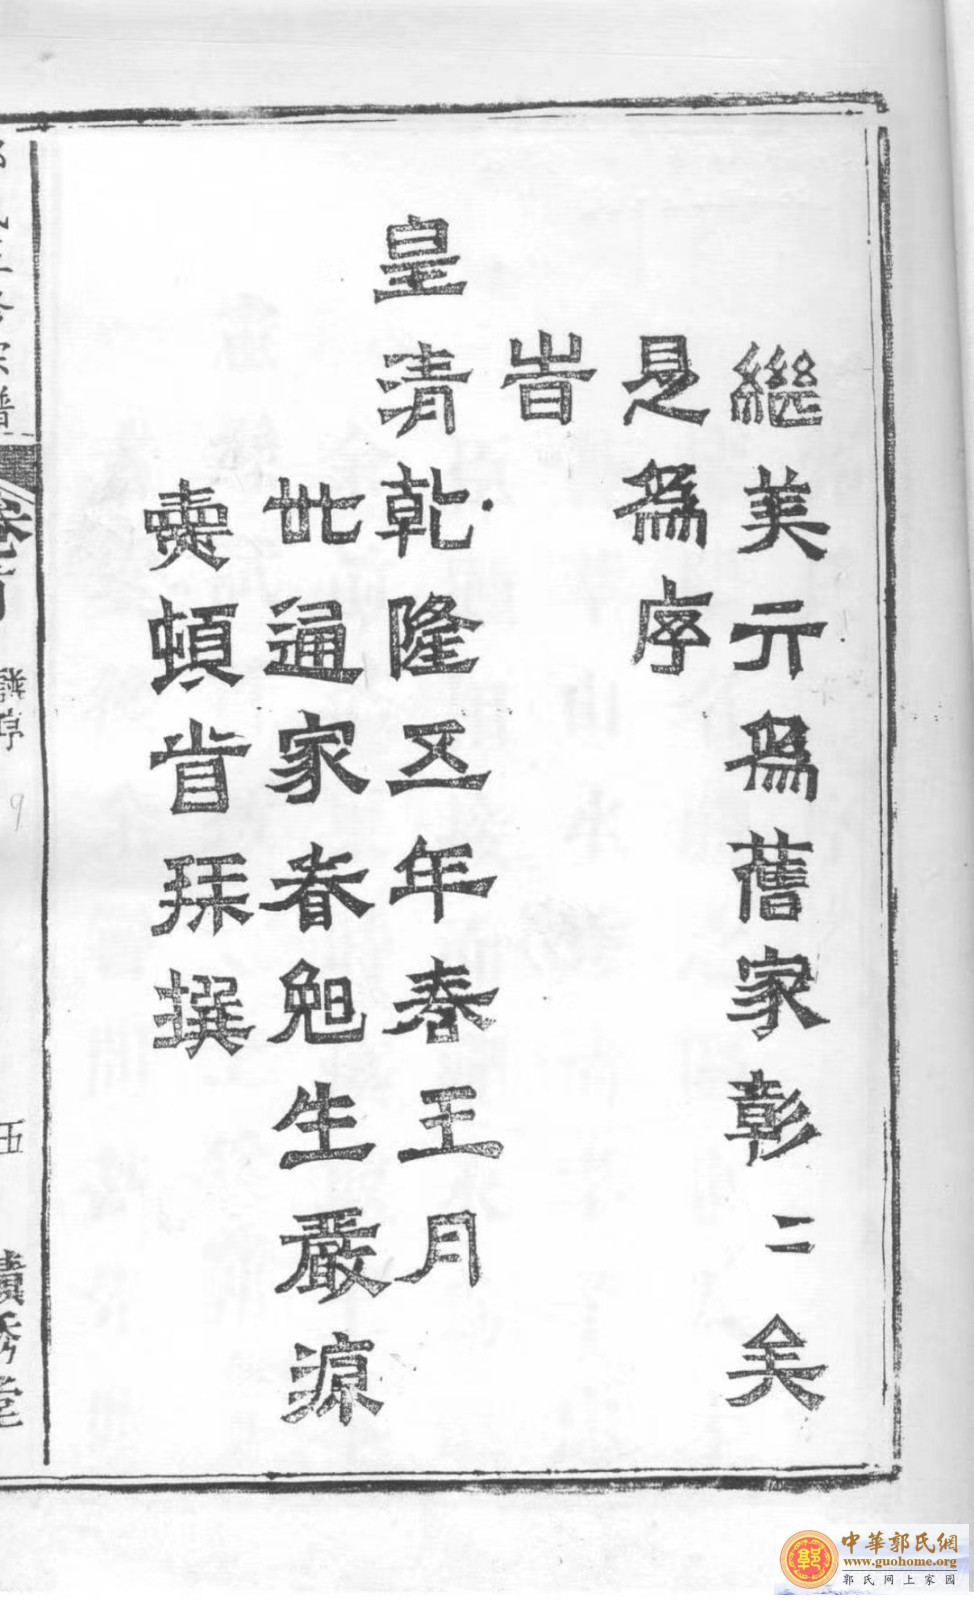 繼美亓爲舊家彰二矣
是爲序
旹
皇清乾隆五年春王月
丗通家眷勉生嚴源
𤏡頓首拜撰
氏三修宗譜 卷首 譜序 9 伍 積秀堂
中華郭氏網
www.guohome.org
郭氏网上家园